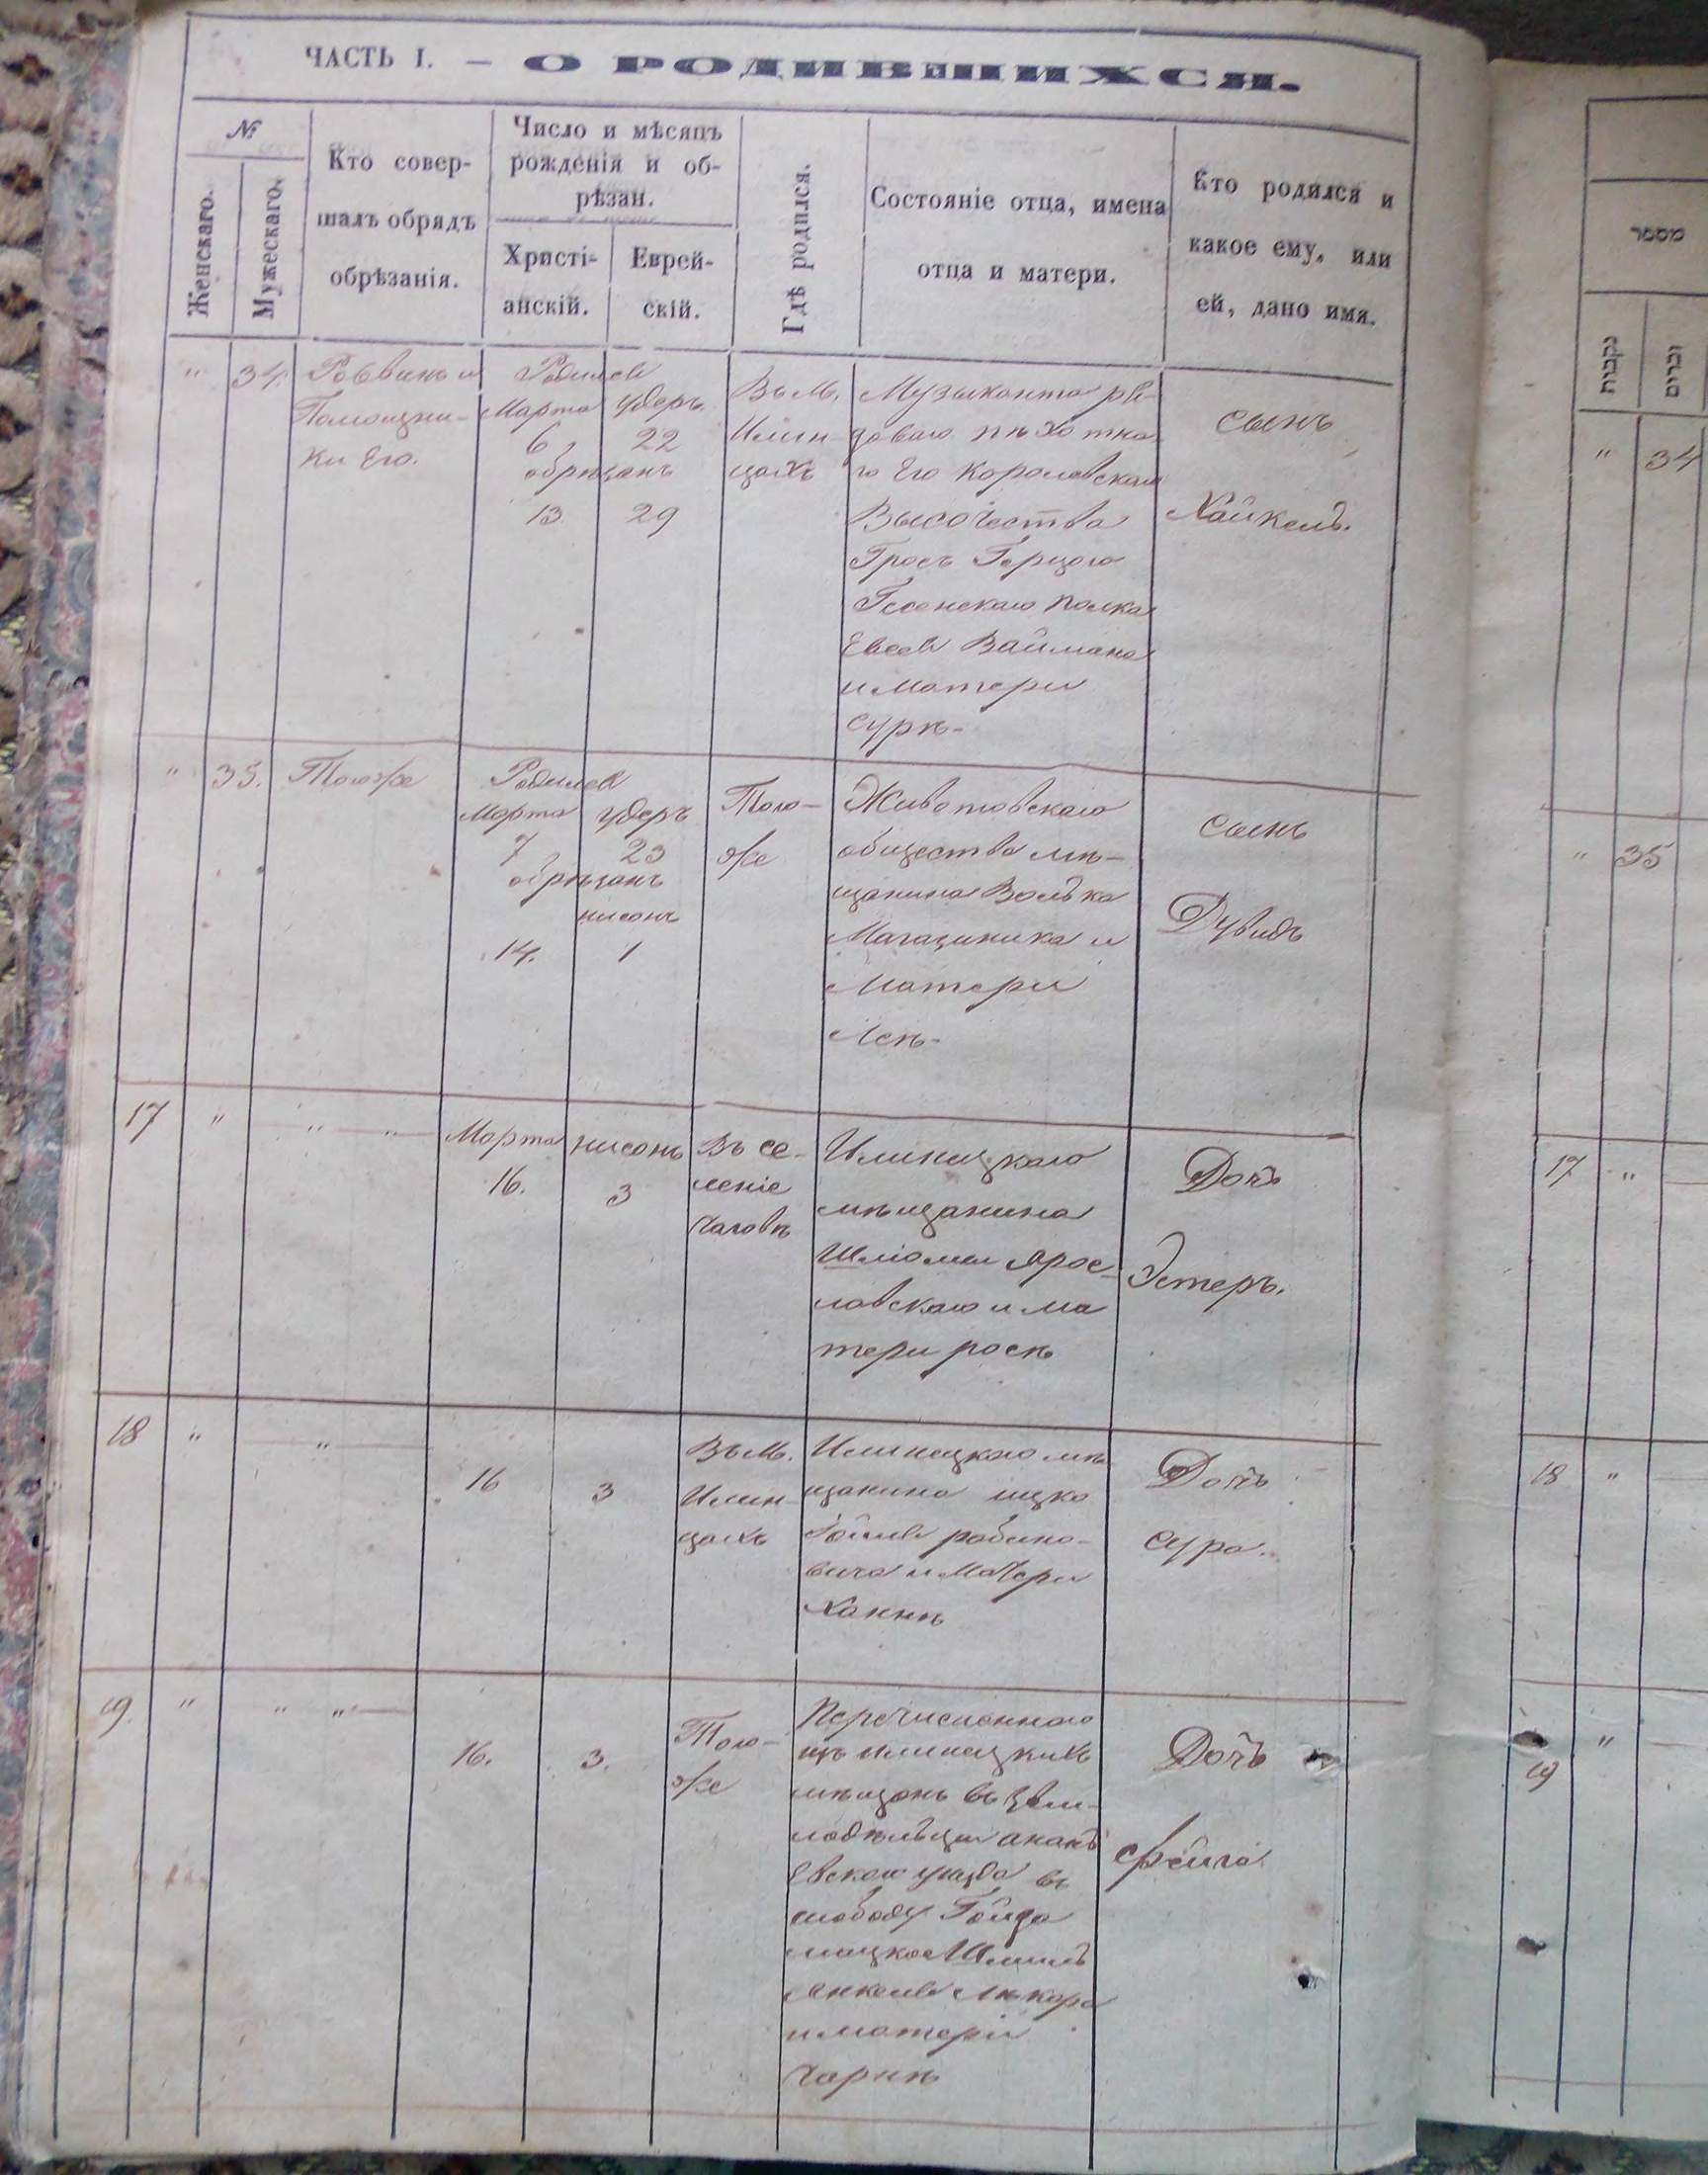 ЧАСТЬ I. — О РОДИВШИХСЯ.
№
Женскаго.
Мужескаго.
Кто совер-
шалъ обрядъ
обрѣзанія.
Число и мѣсяцъ
рожденія и об-
рѣзан.
Христі-
анскій.
Еврей-
скій.
Гдѣ родился.
Состояніе отца, имена
отца и матери.
Кто родился и
какое ему, или
ей, дано имя.
" 34.
Раввинъ и
Помощни-
ки Его.
Родился
Марта Удеръ
6, 22
обрѣзанъ
13. 29
Въ М.
Илин-
цахъ
Музыканта ря-
доваго пѣхотна-
го Его Королевскаго
Высочества
Гросъ Герцога
Гесенскаго полка
Евсея Ваймана
и матери
Сурѣ-
сынъ
Хайкель.
" 35.
Тоже
Родился
Марта Удеръ
7 23
обрѣзанъ
нисонъ
14. 1
Того-
же
Животовскаго
общества мѣ-
щанина Волька
Магазиника и
Матери
Леѣ-
сынъ
Дувидъ
17 " " "
Марта нисонъ
16. 3
Въ се-
леніе
Чаговѣ
Илинецкаго
мѣщанина
Шліомы Ярос-
лавскаго и ма
тери росѣ
Дочь
Эстеръ.
18 " "
16 3
Въ М.
Илин-
цахъ
Илинецкаго мѣ
щанина ицка
рабино-
вича и Матери
Ханнѣ
Дочь
сура.
19. " " "
16. 3.
Того-
же
Перечисленнаго
изъ илинецкихъ
мѣщанъ въ земле-
дѣльцы анань
Евскаго уѣзда въ
слободу
и матери
Чарнѣ
Дочь
Фейга
מספר
נקבות
זכרים
" 34
" 35
17 "
18 "
19 "